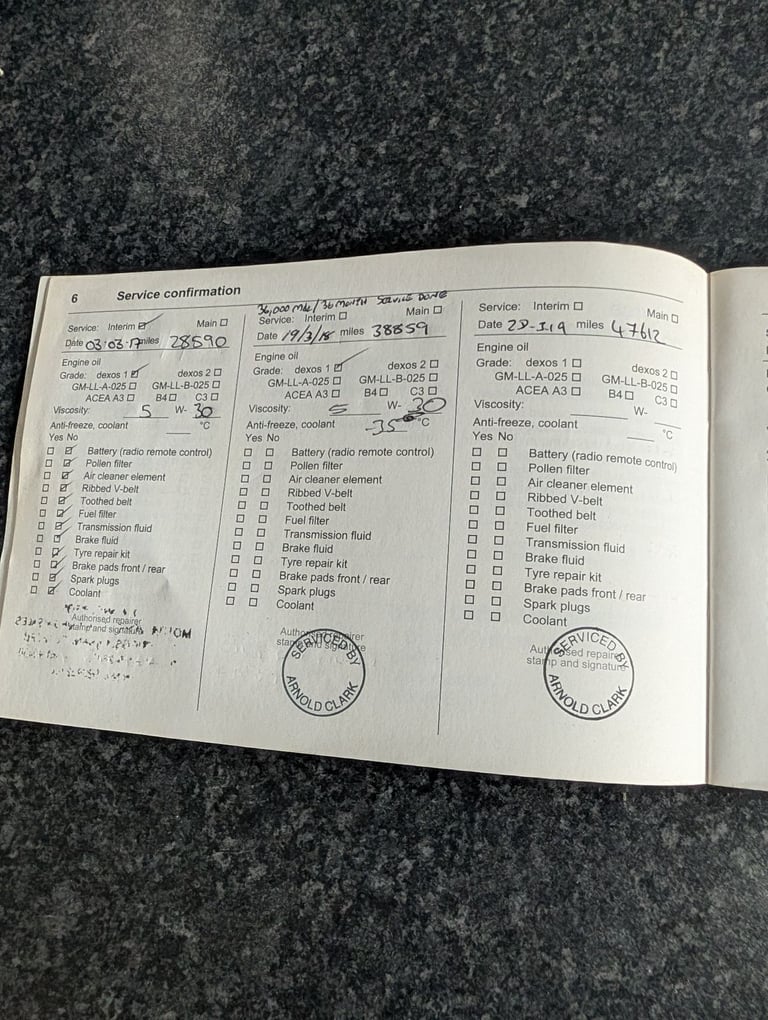 6 Service confirmation
Service: Interim ☑ Main ☐
Date 03·03·17 miles 28590
Engine oil
Grade: dexos 1 ☑ dexos 2 ☐
GM-LL-A-025 ☐ GM-LL-B-025 ☐
ACEA A3 ☐ B4 ☐ C3 ☐
Viscosity: 5 W- 30
Anti-freeze, coolant °C
Yes No
☐ ☑ Battery (radio remote control)
☐ ☑ Pollen filter
☐ ☑ Air cleaner element
☐ ☑ Ribbed V-belt
☐ ☑ Toothed belt
☐ ☑ Fuel filter
☐ ☑ Transmission fluid
☐ ☑ Brake fluid
☐ ☑ Tyre repair kit
☐ ☑ Brake pads front / rear
☐ ☑ Spark plugs
☐ ☑ Coolant
Authorised repairer
stamp and signature
36,000 MILE/36 MONTH SERVICE DONE
Service: Interim ☐ Main ☐
Date 19/3/18 miles 38859
Engine oil
Grade: dexos 1 ☑ dexos 2 ☐
GM-LL-A-025 ☐ GM-LL-B-025 ☐
ACEA A3 ☐ B4 ☐ C3 ☐
Viscosity: 5 W- 30
Anti-freeze, coolant -35 °C
Yes No
☐ ☐ Battery (radio remote control)
☐ ☐ Pollen filter
☐ ☐ Air cleaner element
☐ ☐ Ribbed V-belt
☐ ☐ Toothed belt
☐ ☐ Fuel filter
☐ ☐ Transmission fluid
☐ ☐ Brake fluid
☐ ☐ Tyre repair kit
☐ ☐ Brake pads front / rear
☐ ☐ Spark plugs
☐ ☐ Coolant
Authorised repairer
stamp and signature
SERVICED BY
ARNOLD CLARK
Service: Interim ☐ Main ☐
Date miles 47612
Engine oil
Grade: dexos 1 ☐ dexos 2 ☐
GM-LL-A-025 ☐ GM-LL-B-025 ☐
ACEA A3 ☐ B4 ☐ C3 ☐
Viscosity: W-
Anti-freeze, coolant °C
Yes No
☐ ☐ Battery (radio remote control)
☐ ☐ Pollen filter
☐ ☐ Air cleaner element
☐ ☐ Ribbed V-belt
☐ ☐ Toothed belt
☐ ☐ Fuel filter
☐ ☐ Transmission fluid
☐ ☐ Brake fluid
☐ ☐ Tyre repair kit
☐ ☐ Brake pads front / rear
☐ ☐ Spark plugs
☐ ☐ Coolant
Authorised repairer
stamp and signature
SERVICED BY
ARNOLD CLARK